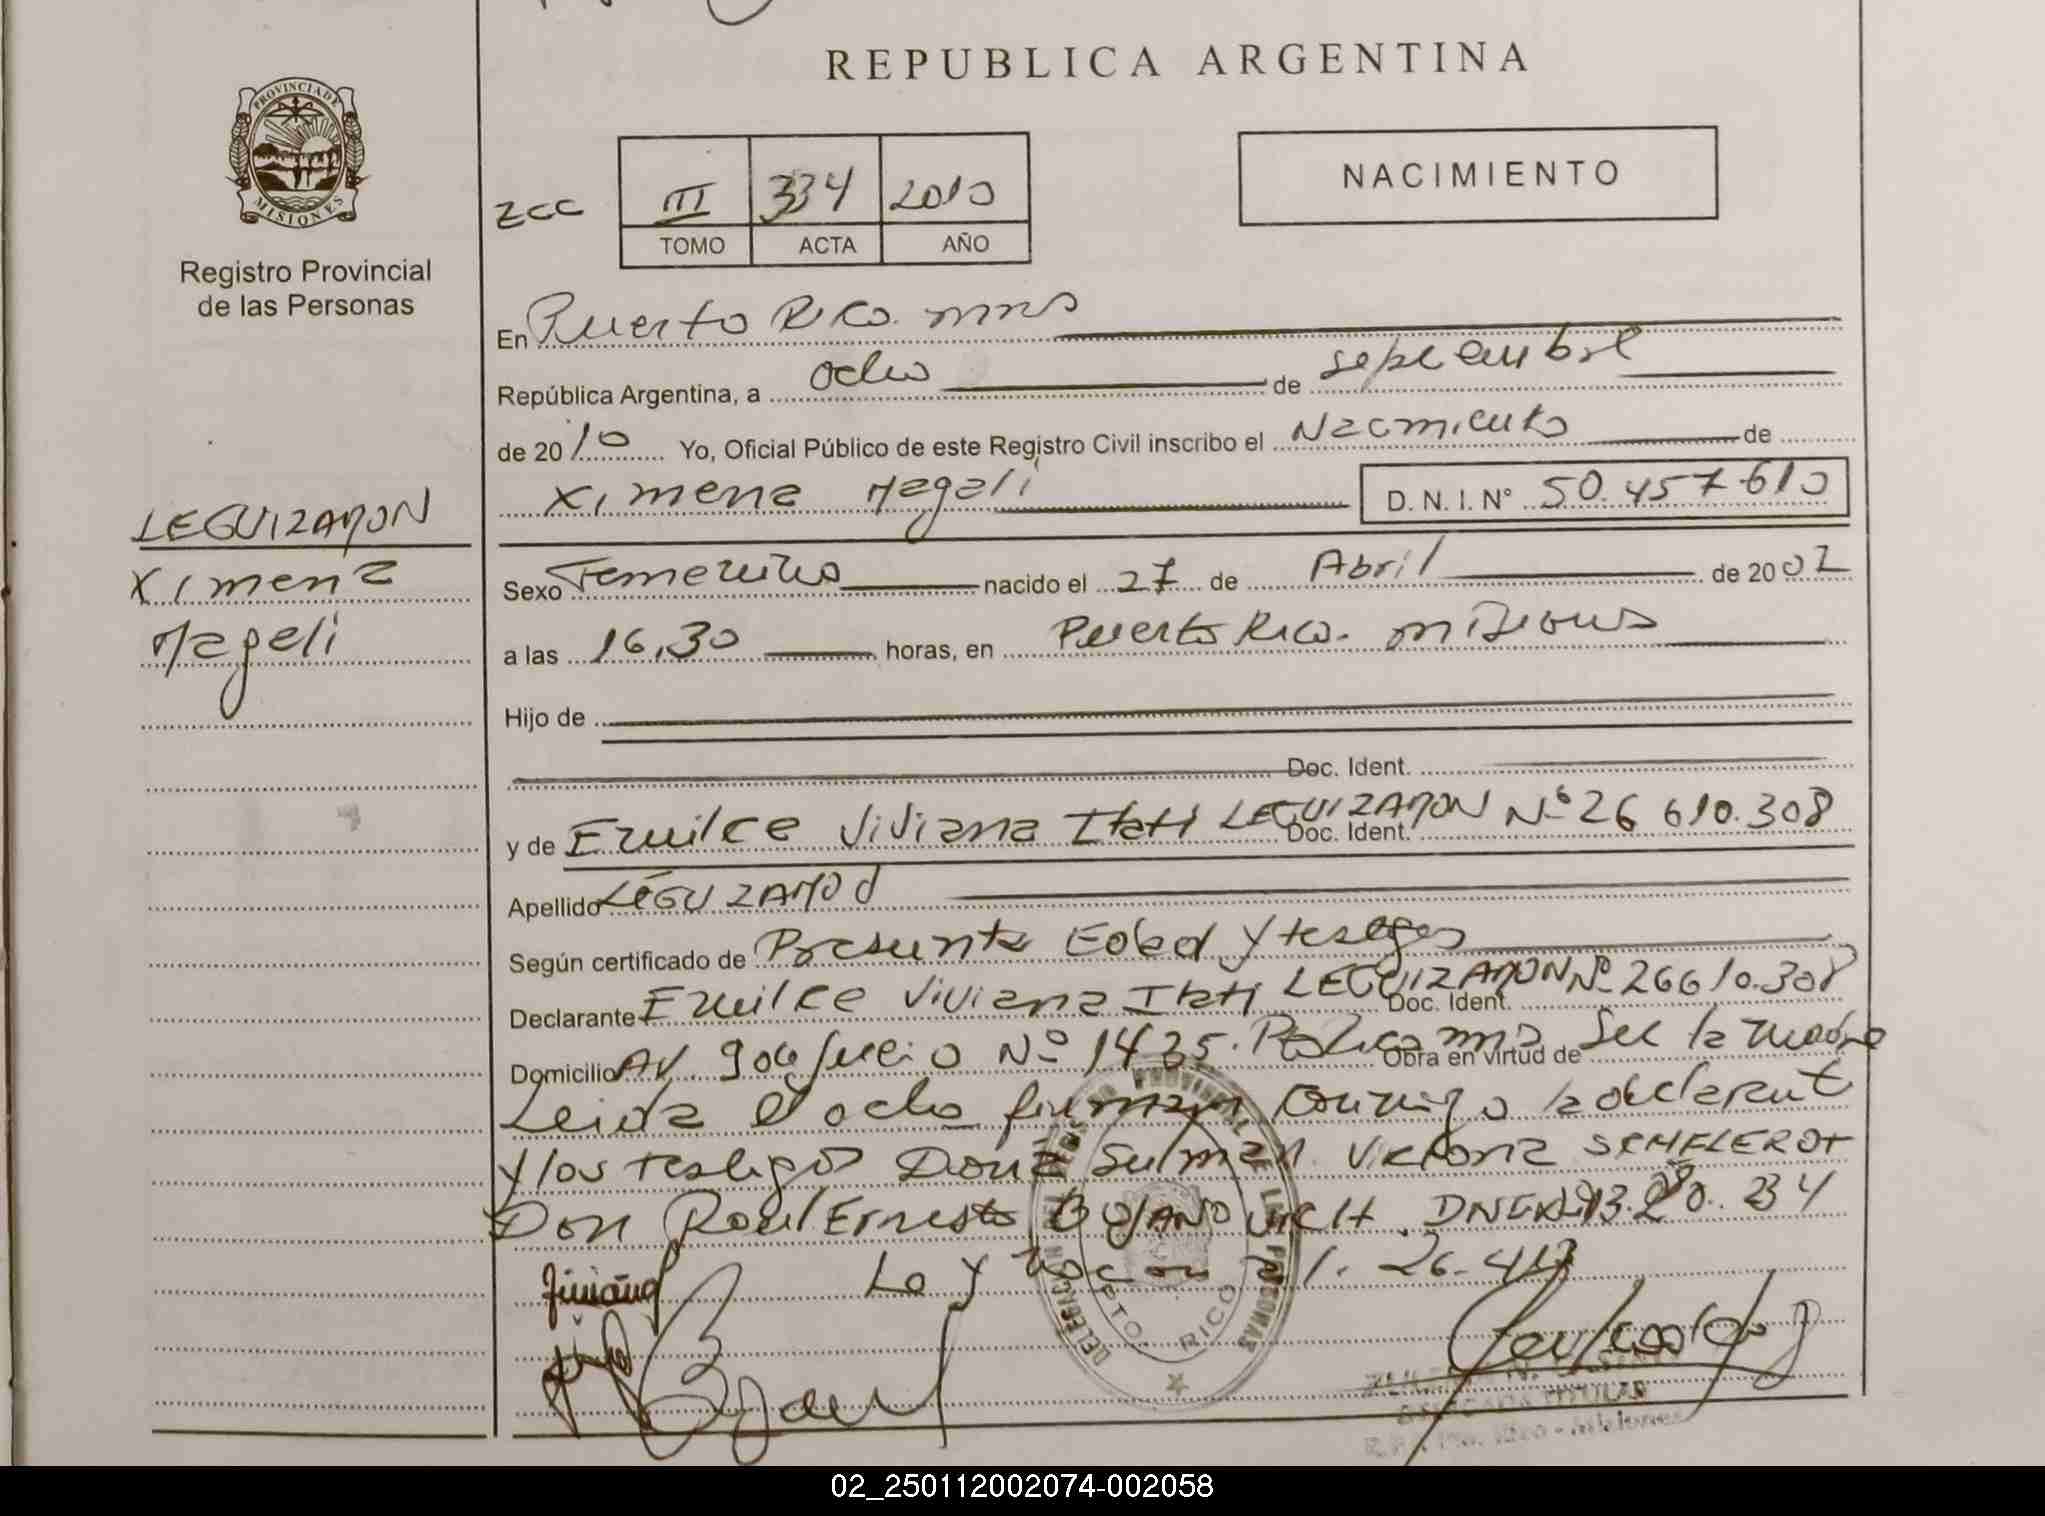 REPUBLICA ARGENTINA
PROVINCIA DE MISIONES
Registro Provincial
de las Personas
NACIMIENTO
ZCC III 334 2010
TOMO ACTA AÑO
En Puerto Rico. mnes
República Argentina, a ocho de septiembre
de 2010 Yo, Oficial Público de este Registro Civil inscribo el Nacimiento de
Ximena Magali D. N. I. N° 50.457.610
LEGUIZAMON
Ximena
Magali
Sexo Femenino nacido el 27 de Abril de 2002
a las 16,30 horas, en Puerto Rico. misiones
Hijo de
Doc. Ident.
y de Emilce Viviana Itati LEGUIZAMON Doc. Ident. Nº 26 610.308
Apellido LEGUIZAMON
Según certificado de Presunta Edad y testigos
Declarante Emilce Viviana Itati LEGUIZAMON Doc. Ident. Nº 26610.308
Domicilio AV. 9 de Julio Nº 1435. Pto Rico mnes Obra en virtud de Ser la madre
Leida el acta firman conmigo la declarante
y los testigos Doña Victoria
Don Raul Ernesto
DELEGACION DEL REGISTRO PROVINCIAL DE LAS PERSONAS
PTO. RICO
TITULAR
Misiones
02_250112002074-002058